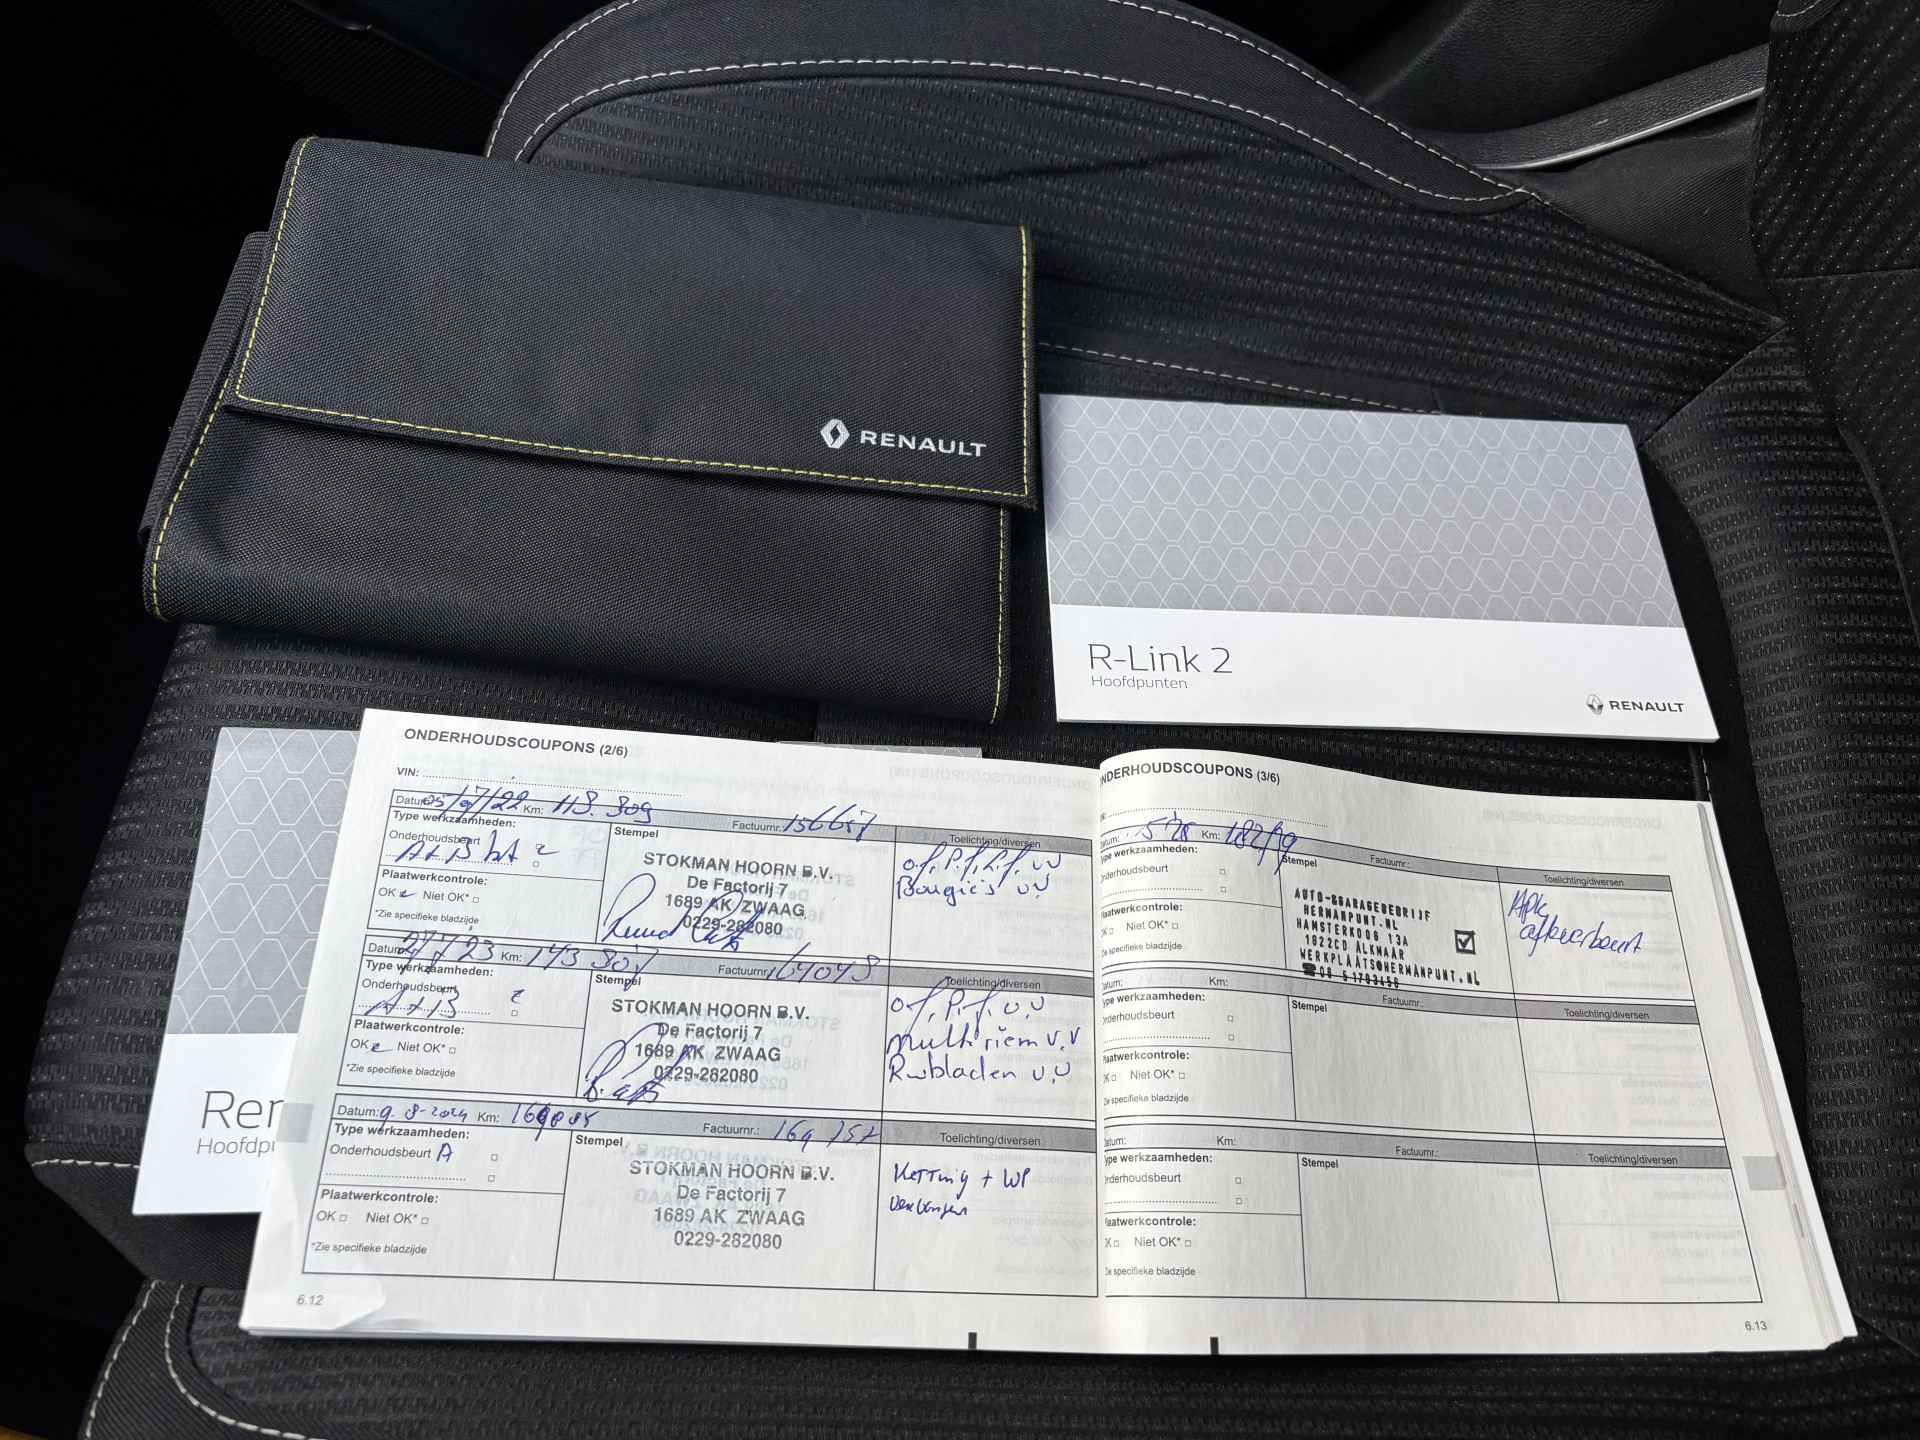 RENAULT
R-Link 2
Hoofdpunten
RENAULT
Ren
Hoofdpu
ONDERHOUDSCOUPONS (2/6)
VIN:
Datum: Km: 118.809 Factuurnr.: 156657
Type werkzaamheden:
Onderhoudsbeurt
A+B
Plaatwerkcontrole:
OK Niet OK*
*Zie specifieke bladzijde
Stempel
STOKMAN HOORN B.V.
De Factorij 7
1689 AK ZWAAG
0229-282080
Toelichting/diversen
o.f, p.f, L.f, v.v
Bougies v.v
Datum: Km: 143 807 Factuurnr.: 164048
Type werkzaamheden:
Onderhoudsbeurt
A+B
Plaatwerkcontrole:
OK Niet OK*
*Zie specifieke bladzijde
Stempel
STOKMAN HOORN B.V.
De Factorij 7
1689 AK ZWAAG
0229-282080
Toelichting/diversen
o.f, p.f, v.v
Multiriem v.v
Rwbladen v.v
Datum: 9-8-2024 Km: Factuurnr.:
Type werkzaamheden:
Onderhoudsbeurt A
Plaatwerkcontrole:
OK Niet OK*
*Zie specifieke bladzijde
Stempel
STOKMAN HOORN B.V.
De Factorij 7
1689 AK ZWAAG
0229-282080
Toelichting/diversen
Ketting + WP
vervangen
6.12
NDERHOUDSCOUPONS (3/6)
atum: Km: Factuurnr.:
Type werkzaamheden:
Onderhoudsbeurt
Plaatwerkcontrole:
OK Niet OK*
Zie specifieke bladzijde
Stempel
AUTO-&GARAGEBEDRIJF
HERMANPUNT.NL
HAMSTERKOOG 13A
1822CD ALKMAAR
WERKPLAATS@HERMANPUNT.NL
Toelichting/diversen
Apk
afleverbeurt
Datum: Km: Factuurnr.:
Type werkzaamheden:
Onderhoudsbeurt
Plaatwerkcontrole:
OK Niet OK*
Zie specifieke bladzijde
Stempel
Toelichting/diversen
Datum: Km: Factuurnr.:
Type werkzaamheden:
Onderhoudsbeurt
Plaatwerkcontrole:
OK Niet OK*
Zie specifieke bladzijde
Stempel
Toelichting/diversen
6.13